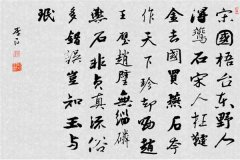 宋國梧台東野人
得駕石宋人狂疑
金去國買燕石本
作天下珍却哂趙
王璧趙璧無緇磷
燕石非貞真流俗
多錯誤豈知玉与
珉